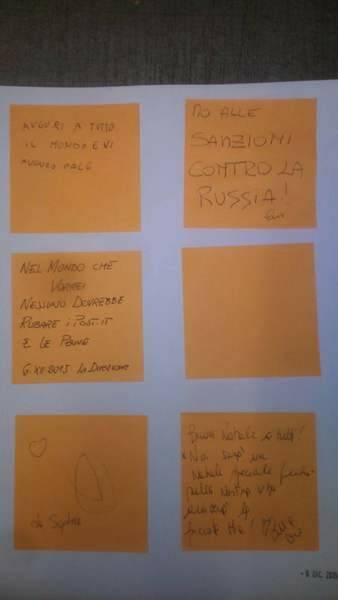 AUGURI A TUTTO
IL MONDO E VI
AUGURO PACE
NO ALLE
SANZIONI
CONTRO LA
RUSSIA!
NEL MONDO CHE
VORREI
NESSUNO DOVREBBE
RUBARE I POST-IT
E LE PENNE
6.XII.2015 LA DIREZIONE
da Sophie
Buon Natale a tutti!
Natale speciale
nella nostra vita